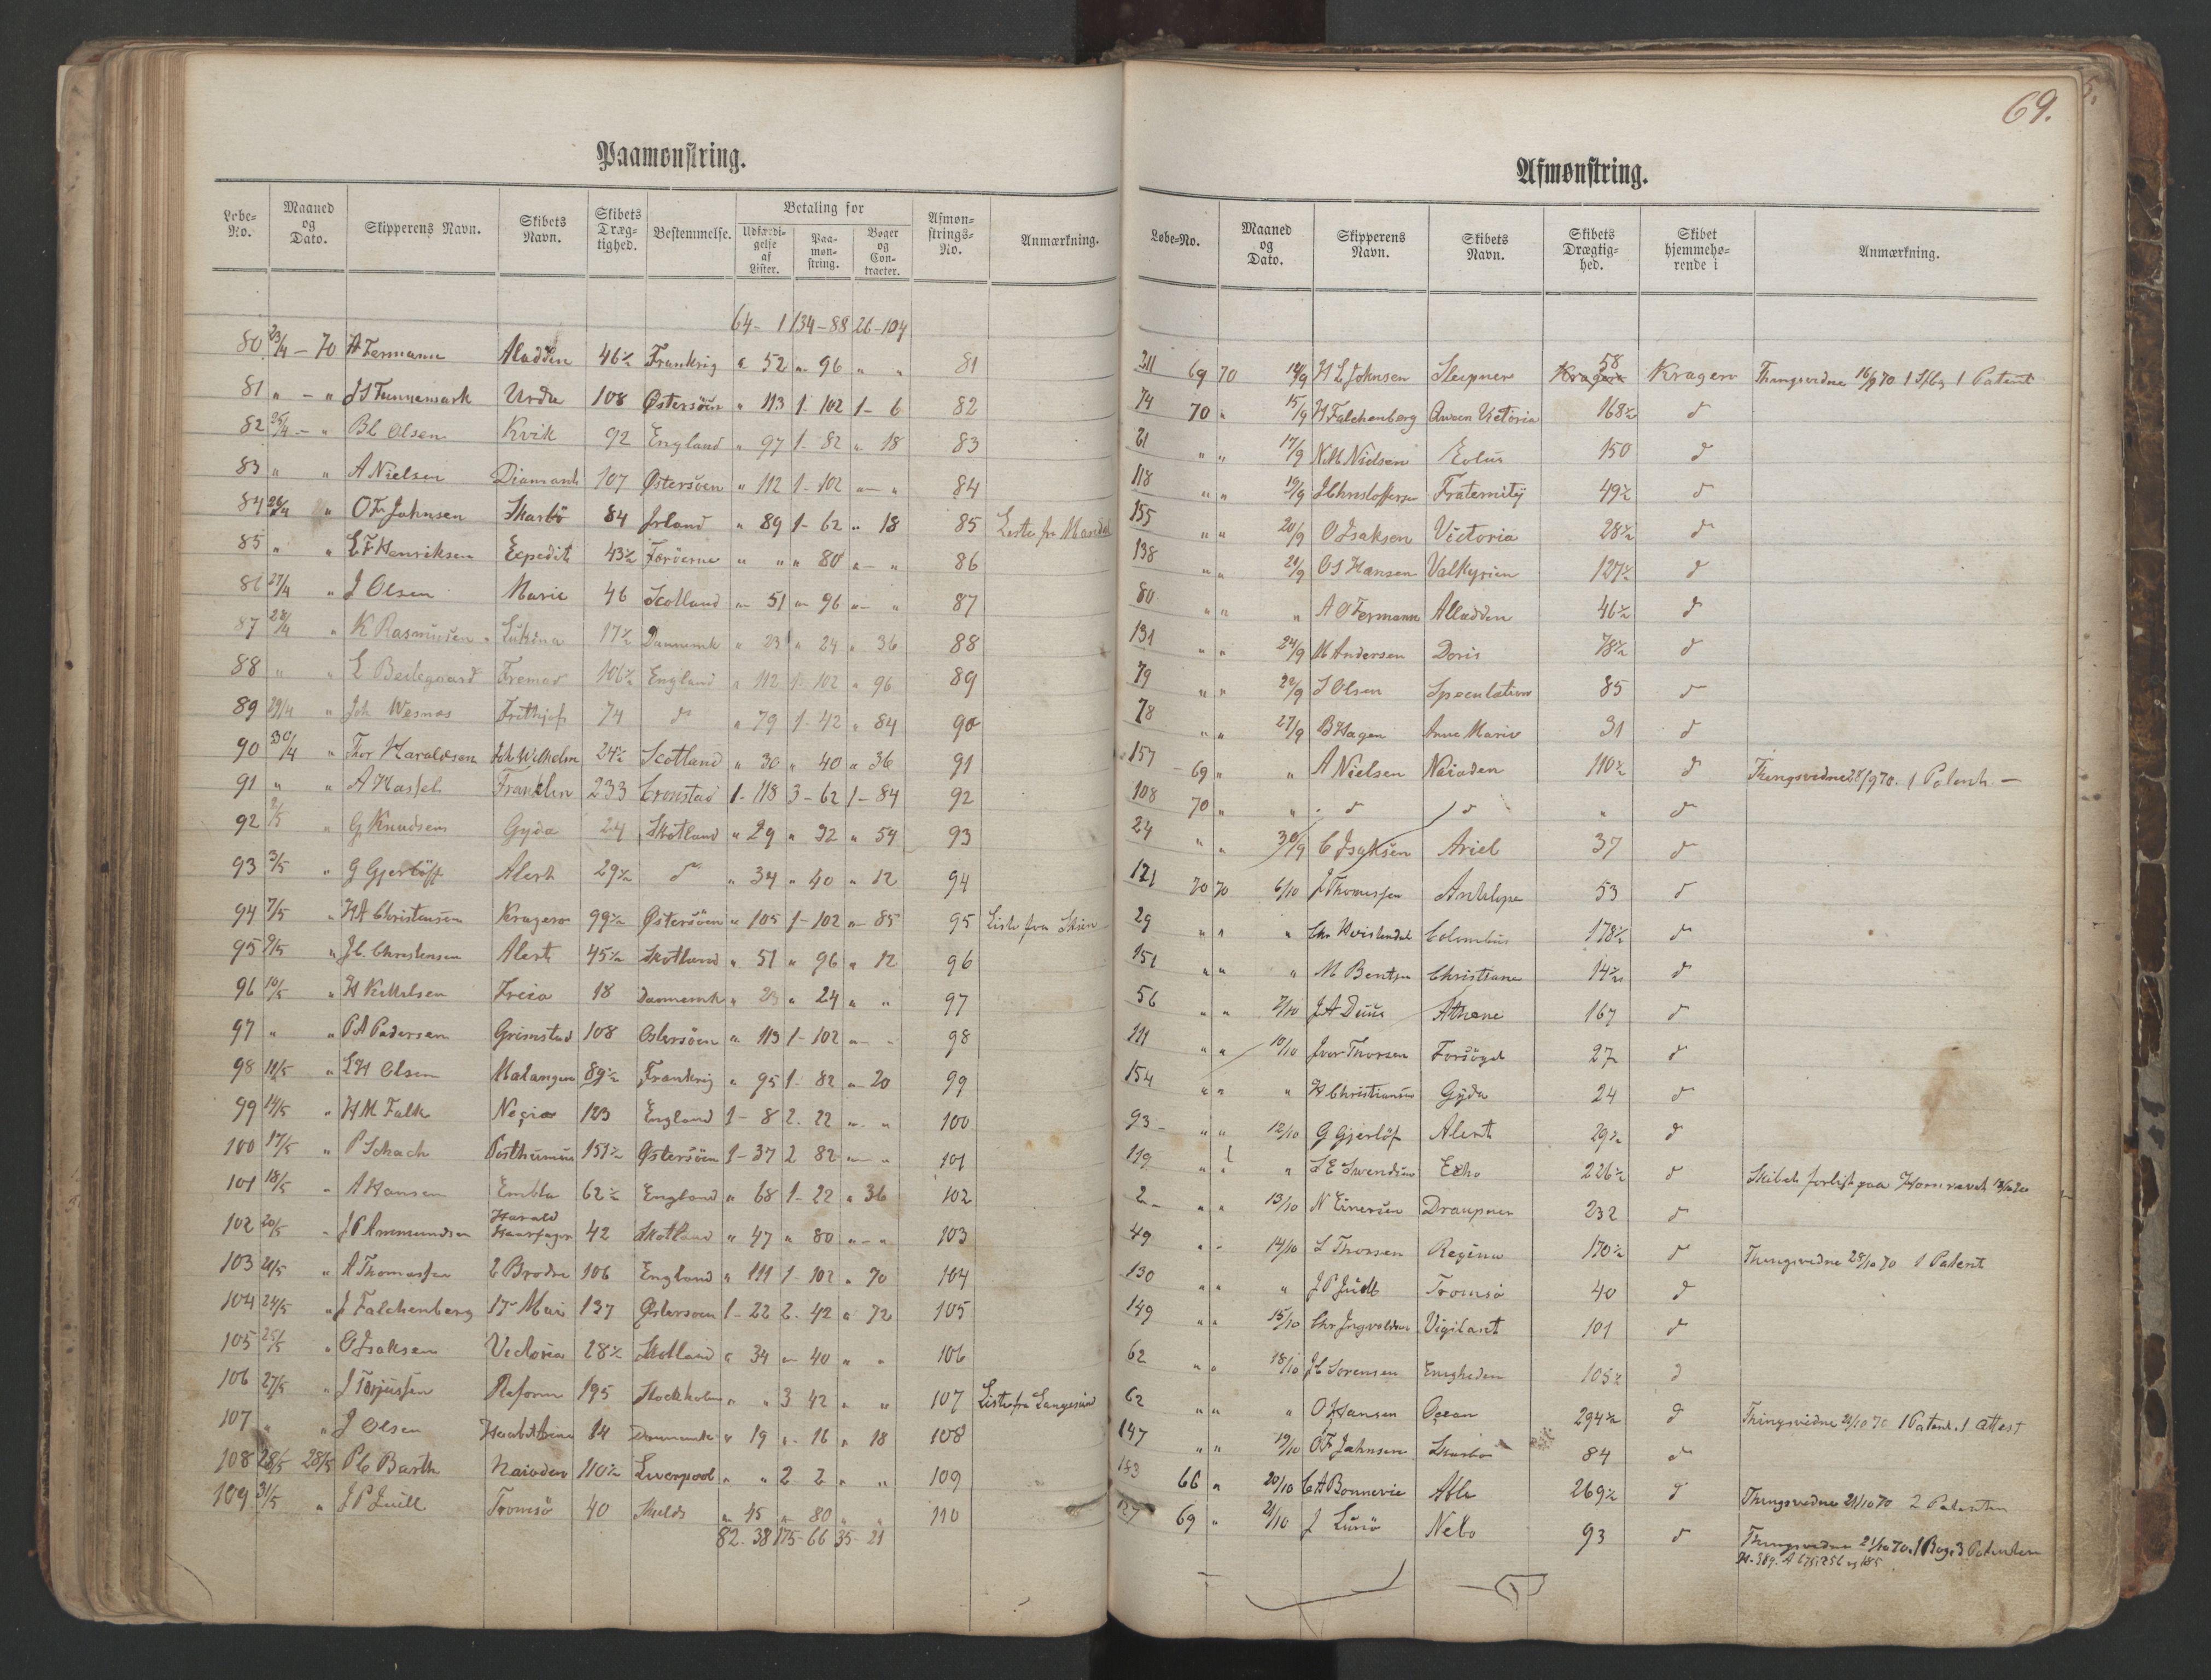 69.
Paamønstring.
Løbe-No. Maaned og Dato. Skipperens Navn. Skibets Navn. Skibets Dræg-tighed. Bestemmelse. Betaling for Udfærdi-gelse af Lister. Paa-møn-string. Bøger og Con-tracter. Afmøn-strings-No. Anmærkning.
64 - 1 134 - 88 26 - 104
80 23/4 - 70 A Fermann Aladdin 46½ Frankrig " 52 " 96 " " 81
81 " - " J S Tunnemark Urda 108 Østersöen " 113 1 - 102 1 - 6 82
82 25/4 - " Bl Olsen Kvik 92 England " 97 1 - 82 " 18 83
83 " " A Nielsen Diamant 107 Østersöen " 112 1 - 102 " - " 84
84 26/4 " O Fr Johnsen Skarbö 84 Irland " 89 1 - 62 " 18 85 Liste fr Mandal
85 " " E F Henriksen Expedit 43½ Færöerne " " " 80 " - " 86
86 27/4 " J Olsen Marie 46 Scotland " 51 " 96 " - " 87
87 28/4 " K Rasmussen Lukina 17½ Danemk " 23 " 24 " 36 88
88 " " L Beilegaard Fremad 106½ England " 112 1 - 102 " 96 89
89 29/4 " Joh Wesnes Frithjof 74 d " 79 1 - 42 " 84 90
90 30/4 " Thor Haraldsen Joh Wilhelm 24½ Scotland " 30 " 40 " 36 91
91 " " A Hassel Franklin 233 Cronstad 1 - 118 3 - 62 1 - 84 92
92 2/5 " G Knudsen Gyda 24 Skotland " 29 " 32 " 54 93
93 3/5 " G Gjerlöff Alert 29½ d " 34 " 40 " 12 94
94 7/5 " H A Christensen Kragerø 99½ Østersöen " 105 1 - 102 " - 85 95 Liste fra Skien
95 9/5 " J C Christensen Alert 45½ Skotland " 51 " 96 " 12 96
96 10/5 " H Kittelsen Freia 18 Danmark " 23 " 24 " " 97
97 " " P A Pedersen Grimstad 108 Østersöen " 113 1 - 102 " - " 98
98 11/5 " L H Olsen Malangen 89½ Frankrig " 95 1 - 82 " - 20 99
99 14/5 " H M Falk Negia 123 England 1 - 8 2 . 22 " - " 100
100 17/5 " P Schach Posthumus 151½ Østersöen 1 - 37 2 82 " - " 101
101 18/5 " A Hansen Embla 62½ England " 68 1 - 22 " 36 102
102 20/5 " J P Ammundsen Harald Haarfager 42 Skotland " 47 " 80 " - " 103
103 21/5 " A Thomassen 2 Brødre 106 England " 111 1 - 102 " 70 104
104 24/5 " J Falchenberg 17 Mai 137 Østersøen 1 - 22 2 - 42 " 72 105
105 25/5 " O Isaksen Victoria 28½ Skotland " 34 " 40 " " 106
106 27/5 " J Torjussen Reform 195 Stockholm " " 3 42 " " 107 Liste fra Langesund
107 " " J Olsen 14 Danmark " 19 " 16 " 18 108
108 28/5 28/5 P C Barth Naiaden 110½ Liverpool " " 2 - 2 " " 109
109 31/5 " J P Juell Tromsö 40 Shields " 45 " 80 " " 110
82 . 38 175 - 66 35 - 21
Afmønstring.
Løbe-No. Maaned og Dato. Skipperens Navn. Skibets Navn. Skibets Drægtig-hed. Skibet hjemmehø-rende i Anmærkning.
211 69 70 14/9 H L Johnsen Sleipner Kragerø 58 Kragerø Thingsvidne 16/9 70 1 Sfbg 1 Patent
74 70 " 15/9 H Falchenberg Queen Victoria 168½ d
21 " " 17/9 N M Nielsen Eolus 150 d
118 " " 19/9 J Christoffersen Fraternity 49½ d
155 " " 20/9 O Isaksen Victoria 28½ d
138 " " 21/9 O S Hansen Valkyrien 127½ d
80 " " " A O Fermann Alladdin 46½ d
131 " " 24/9 M Andersen Doris 78½ d
79 " " 22/9 S Olsen Speculation 85 d
78 " " 27/9 B Hagen Anne Marie 31 d
157 - 69 " " A Nielsen Naiaden 110½ d Thingsvidne 28/9 70. 1 Patent -
108 70 " " d d " d
24 " " 30/9 C Isaksen Ariel 37 d
121 70 70 6/10 J Thomessen Antelope 53 d
29 " " " Chr Hvistendal Colombus 178½ d
151 " " " M Bentsen Christiane 14½ d
56 " " 7/10 J A Duus Athene 167 d
111 " " 10/10 Iver Thorsen Forsöget 27 d
154 " " " H Christiansen Gyda 24 d
93 - " " 12/10 G Gjerlöf Alert 29½ d
119 " " " S E Swendsen Echo 226½ d Skibet forlist paa
2 - " " 13/10 N Einersen Draupner 232 d
49 " " 14/10 S Thorsen Regina 170½ d Thingsvidne 28/10 70 1 Patent
130 " " " J P Juell Tromsö 40 d
149 " " 15/10 Chr Ingvoldsen Vigilant 101 d
62 " " 18/10 J C Sorensen Enigheden 105½ d
62 " " " O Hansen Ocean 294½ d Thingsvidne 21/10 70 1 Patent. 1 Attest
147 " " 19/10 O F Johnsen Skarbo 84 d
183 66 " 20/10 C A Bonnevie Atle 269½ d Thingsvidne 21/10 70 2 Patenter
127 69 " 21/10 J Lunö Nebo 93 d Thingsvidne 21/10 70. 1 Bog. 3 Patenter